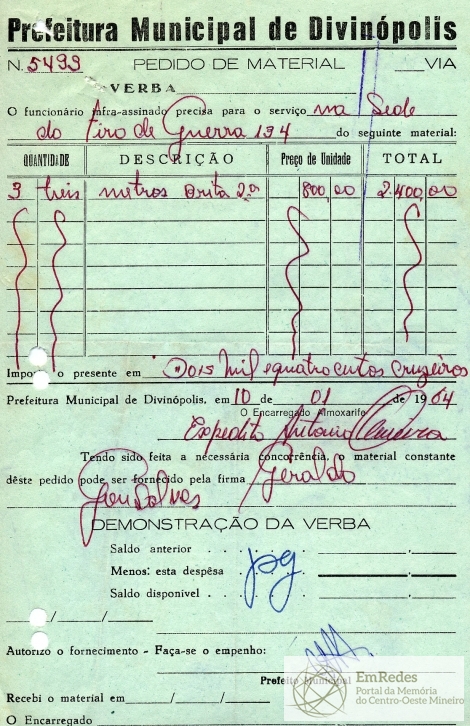 Prefeitura Municipal de Divinópolis
N. 5499 PEDIDO DE MATERIAL VIA
VERBA
O funcionário infra-assinado precisa para o serviço na Sede
do tiro de Guerra 134 do seguinte material:
QUANTIDADE DESCRIÇÃO Preço de Unidade TOTAL
3 três metros brita 2.a 800,00 2.400,00
Importa o presente em Dois mil e quatrocentos Cruzeiros
Prefeitura Municipal de Divinópolis, em 10 de 01 de 1964
O Encarregado Almoxarife
Expedito Antonio
Tendo sido feita a necessária concorrência, o material constante
dêste pedido pode ser fornecido pela firma Geraldo
Gonsalves
DEMONSTRAÇÃO DA VERBA
Saldo anterior . . .
Menos: esta despêsa
Saldo disponivel . .
pg
Autorizo o fornecimento - Faça-se o empenho:
Prefeito Municipal
Recebi o material em / /
O Encarregado
EmRedes
Portal da Memória
do Centro-Oeste Mineiro